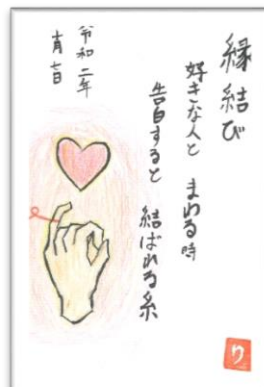 縁結び
好きな人と まわる時
告白すると 結ばれる糸
令和二年
り